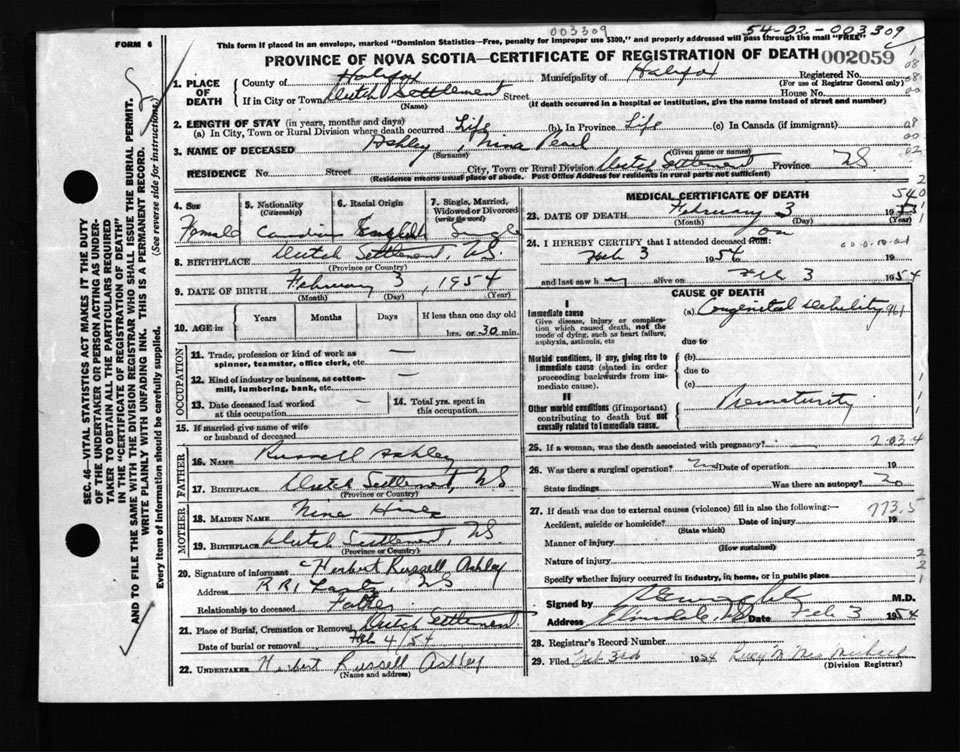 003309
54-02-003309
FORM 6
This form if placed in an envelops, marked "Dominion Statistics—Free, penalty for improper use $300," and properly addressed will pass through the mail "FREE"
PROVINCE OF NOVA SCOTIA—CERTIFICATE OF REGISTRATION OF DEATH 002059
1. PLACE OF DEATH
County of Halifax Municipality of Halifax Registered No.
(For use of Registrar General only)
If in City or Town Dutch Settlement Street House No.
(Name) (If death occurred in a hospital or institution, give the name instead of street and number)
2. LENGTH OF STAY (in years, months and days)
(a) In City, Town or Rural Division where death occurred Life (b) In Province Life (c) In Canada (if immigrant)
3. NAME OF DECEASED Ashley, Nina Pearl
(Surname) (Given name or names)
RESIDENCE No. Street City, Town or Rural Division Dutch Settlement Province NS
(Residence means usual place of abode. Post Office Address for residents in rural parts not sufficient)
4. Sex Female
5. Nationality (Citizenship) Canadian
6. Racial Origin English
7. Single, Married, Widowed or Divorced (write the word) Single
8. BIRTHPLACE Dutch Settlement, NS.
(Province or Country)
9. DATE OF BIRTH February 3, 1954
(Month) (Day) (Year)
10. AGE in Years Months Days If less than one day old
hrs. or 30 min.
OCCUPATION
11. Trade, profession or kind of work as —
spinner, teamster, office clerk, etc.
12. Kind of industry or business, as cotton- —
mill, lumbering, bank, etc.
13. Date deceased last worked — at this occupation
14. Total yrs. spent in this occupation
15. If married give name of wife
or husband of deceased
FATHER
16. NAME Russell Ashley
17. BIRTHPLACE Dutch Settlement, NS
(Province or Country)
MOTHER
18. MAIDEN NAME Nina
19. BIRTHPLACE Dutch Settlement, NS
(Province or Country)
20. Signature of informant Herbert Russell Ashley
Address R R 1, Lantz, NS
Relationship to deceased Father
21. Place of Burial, Cremation or Removal Dutch Settlement
Date of burial or removal Feb 4/54
22. UNDERTAKER Herbert Russell Ashley
(Name and address)
MEDICAL CERTIFICATE OF DEATH
23. DATE OF DEATH February 3 19 54
(Month) (Day) (Year)
24. I HEREBY CERTIFY that I attended deceased from: on
Feb 3 1954 to 19
and last saw h alive on Feb 3 1954
CAUSE OF DEATH
I
Immediate cause
Give disease, injury or complica-
tion which caused death, not the
mode of dying, such as heart failure,
asphyxia, asthenia, etc
(a) Congenital debility
due to
Morbid conditions, if any, giving rise to
immediate cause (stated in order
proceeding backwards from im-
mediate cause).
(b)
due to
(c)
II
Other morbid conditions (if important)
contributing to death but not
causally related to immediate cause.
Prematurity
25. If a woman, was the death associated with pregnancy?
26. Was there a surgical operation? No Date of operation 19
State findings Was there an autopsy? No
27. If death was due to external causes (violence) fill in also the following:— 773.5
Accident, suicide or homicide? Date of injury 19
(State which)
Manner of injury
(How sustained)
Nature of injury
Specify whether injury occurred in industry, in home, or in public place
Signed by M.D.
Address Elmsdale, NS Date Feb 3 1954
28. Registrar's Record Number
29. Filed Feb 3rd 1954
(Division Registrar)
SEC. 46—VITAL STATISTICS ACT MAKES IT THE DUTY
OF THE UNDERTAKER OR PERSON ACTING AS UNDER-
TAKER TO OBTAIN ALL THE PARTICULARS REQUIRED
IN THE "CERTIFICATE OF REGISTRATION OF DEATH"
AND TO FILE THE SAME WITH THE DIVISION REGISTRAR WHO SHALL ISSUE THE BURIAL PERMIT.
WRITE PLAINLY WITH UNFADING INK. THIS IS A PERMANENT RECORD.
Every item of Information should be carefully supplied. (See reverse side for instructions.)